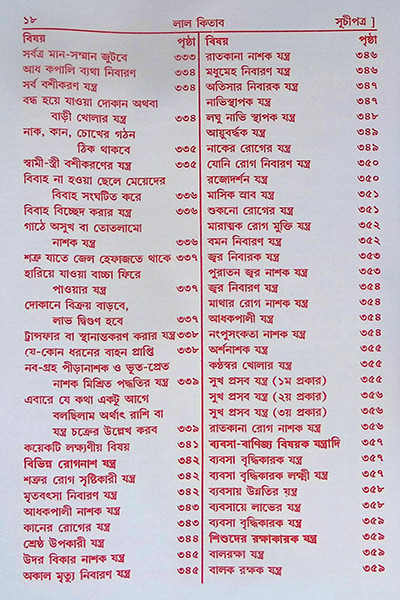 ১৮
লাল কিতাব
সূচীপত্র ]
বিষয় পৃষ্ঠা
সর্বত্র মান-সম্মান জুটবে ৩৩৩
আধ কপালি ব্যথা নিবারণ ৩৩৪
সর্ব বশীকরণ যন্ত্র ৩৩৪
বন্ধ হয়ে যাওয়া দোকান অথবা
বাড়ী খোলার যন্ত্র ৩৩৪
নাক, কান, চোখের গঠন
ঠিক থাকবে ৩৩৫
স্বামী-স্ত্রী বশীকরণের যন্ত্র ৩৩৫
বিবাহ না হওয়া ছেলে মেয়েদের
বিবাহ সংঘটিত করে ৩৩৬
বিবাহ বিচ্ছেদ করার যন্ত্র ৩৩৬
গাঠে অসুখ বা তোতলামো
নাশক যন্ত্র ৩৩৬
শত্রু যাতে জেল হেফাজতে থাকে ৩৩৭
হারিয়ে যাওয়া বাচ্চা ফিরে
পাওয়ার যন্ত্র ৩৩৭
দোকানে বিক্রয় বাড়বে,
লাভ দ্বিগুণ হবে ৩৩৭
ট্রান্সফার বা স্থানান্তকরণ করার যন্ত্র ৩৩৮
যে-কোন ধরনের বাহন প্রাপ্তি ৩৩৮
নব-গ্রহ পীড়ানাশক ও ভূত-প্রেত
নাশক মিশ্রিত পদ্ধতির যন্ত্র ৩৩৯
এবারে যে কথা একটু আগে
বলছিলাম অর্থাৎ রাশি বা
যন্ত্র চক্রের উল্লেখ করব ৩৩৯
কয়েকটি লক্ষ্যণীয় বিষয় ৩৪১
বিভিন্ন রোগনাশ যন্ত্র ৩৪২
শত্রুর রোগ সৃষ্টিকারী যন্ত্র ৩৪২
মৃতবৎসা নিবারণ যন্ত্র ৩৪২
আধকপালী নাশক যন্ত্র ৩৪৩
কানের রোগের যন্ত্র ৩৪৩
শ্রেষ্ঠ উপকারী যন্ত্র ৩৪৪
উদর বিকার নাশক যন্ত্র ৩৪৫
অকাল মৃত্যু নিবারণ যন্ত্র ৩৪৫
বিষয় পৃষ্ঠা
রাতকানা নাশক যন্ত্র ৩৪৬
মধুমেহ নিবারণ যন্ত্র ৩৪৬
অতিসার নিবারক যন্ত্র ৩৪৭
নাভিস্থাপক যন্ত্র ৩৪৭
লঘু নাভি স্থাপক যন্ত্র ৩৪৮
আয়ুবর্দ্ধক যন্ত্র ৩৪৯
নাকের রোগের যন্ত্র ৩৪৯
যোনি রোগ নিবারণ যন্ত্র ৩৫০
রজোদর্শন যন্ত্র ৩৫০
মাসিক স্রাব যন্ত্র ৩৫১
শুকনো রোগের যন্ত্র ৩৫১
মারাত্মক রোগ মুক্তি যন্ত্র ৩৫২
বমন নিবারণ যন্ত্র ৩৫২
জ্বর নিবারক যন্ত্র ৩৫৩
পুরাতন জ্বর নাশক যন্ত্র ৩৫৩
জ্বর নিবারণ যন্ত্র ৩৫৪
মাথার রোগ নাশক যন্ত্র ৩৫৪
আধকপালী যন্ত্র ৩৫৪
নংপুংসংকতা নাশক যন্ত্র ৩৫৪
অর্শনাশক যন্ত্র ৩৫৫
কণ্ঠস্বর খোলার যন্ত্র ৩৫৫
সুখ প্রসব যন্ত্র (১ম প্রকার) ৩৫৫
সুখ প্রসব যন্ত্র (২য় প্রকার) ৩৫৬
সুখ প্রসব যন্ত্র (৩য় প্রকার) ৩৫৬
রাতকানা রোগ নাশক যন্ত্র ৩৫৬
ব্যবসা-বাণিজ্য বিষয়ক যন্ত্রাদি ৩৫৭
ব্যবসা বৃদ্ধিকারক যন্ত্র ৩৫৭
ব্যবসা বৃদ্ধিকারক লক্ষ্মী যন্ত্র ৩৫৭
ব্যবসায় উন্নতির যন্ত্র ৩৫৮
ব্যবসায়ে লাভের যন্ত্র ৩৫৮
ব্যবসা বৃদ্ধিকারক যন্ত্র ৩৫৯
শিশুদের রক্ষাকারক যন্ত্র ৩৫৯
বালরক্ষা যন্ত্র ৩৫৯
বালক রক্ষক যন্ত্র ৩৫৯